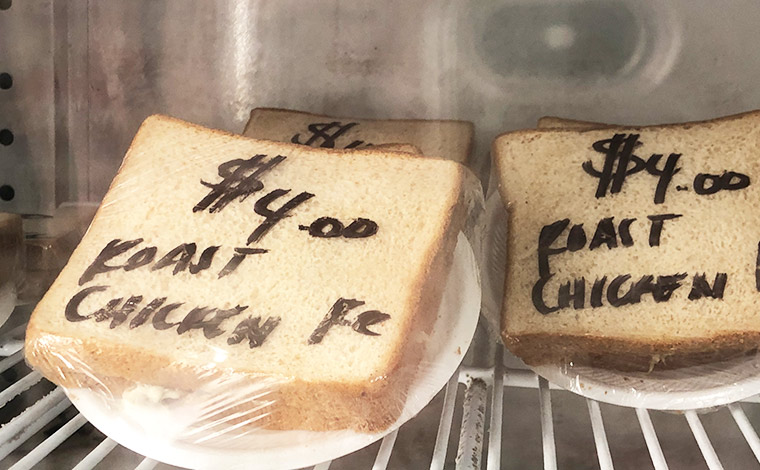 $4.00
ROAST
CHICKEN FC
$4.00
ROAST
CHICKEN
$